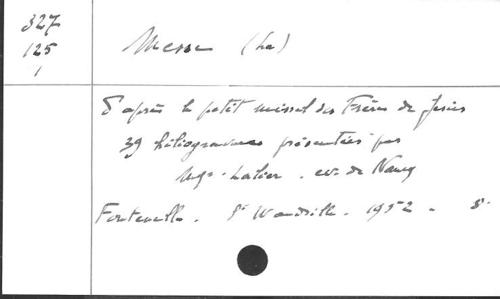 327
125
1
Messe (La)
D'après le petit missel des Frères de Jésus
39 héliogravures présentées par
Mgr Lallier. ev. de Nancy
Fontenelle. St Wandrille. 1952. 8°